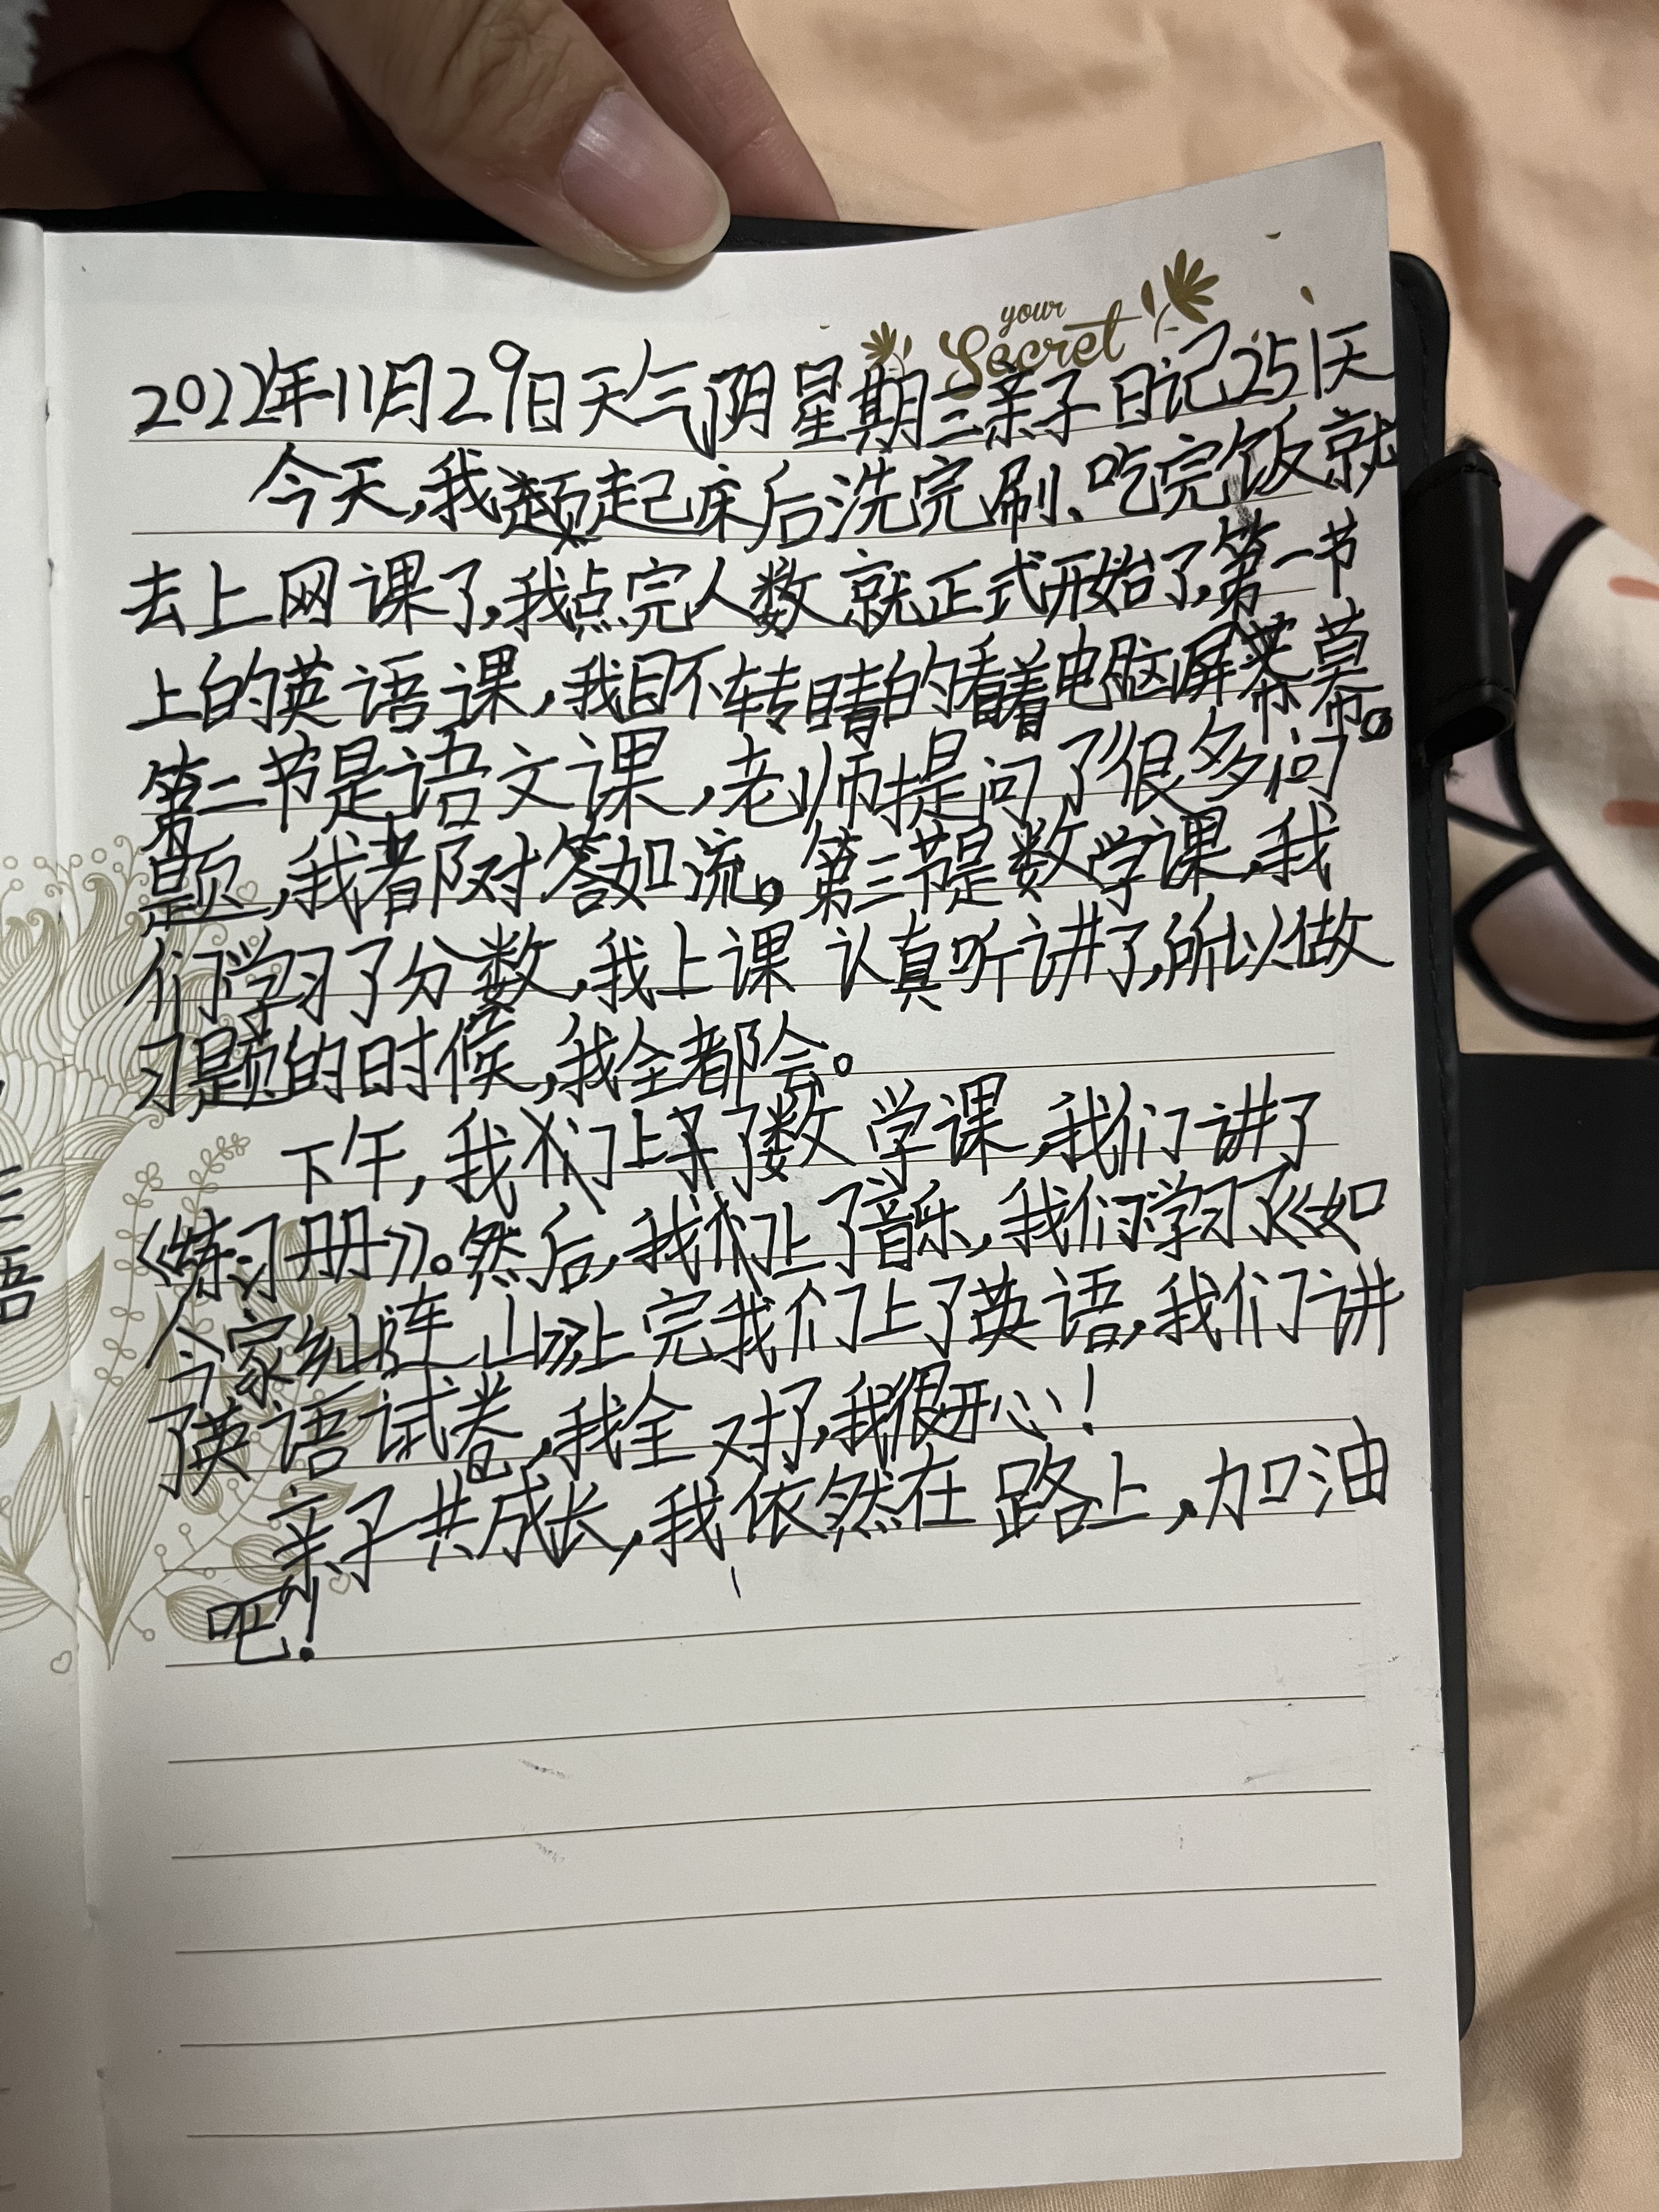 your
Secret
2022年11月29日天气阴星期三亲子日记251天
今天,我起床后洗完刷、吃完饭就
去上网课了,我点完人数就正式开始了,第一节
上的英语课,我目不转睛的看着电脑屏幕。
第二节是语文课,老师提问了很多问
题,我都对答如流。第三节是数学课,我
们学习了分数,我上课认真听讲了,所以做
习题的时候,我全都会。
下午,我们上了数学课,我们讲了
《练习册》。然后,我们上了音乐,我们学习了《如
今家乡山连山》,上完我们上了英语,我们讲
了英语试卷,我全对了,我很开心!
亲子共成长,我依然在路上,加油
吧!
语